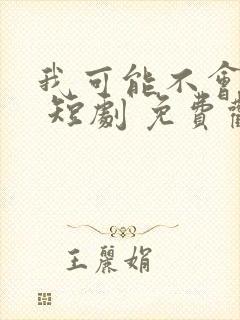 我可能不會
短劇 免費
王麗娟